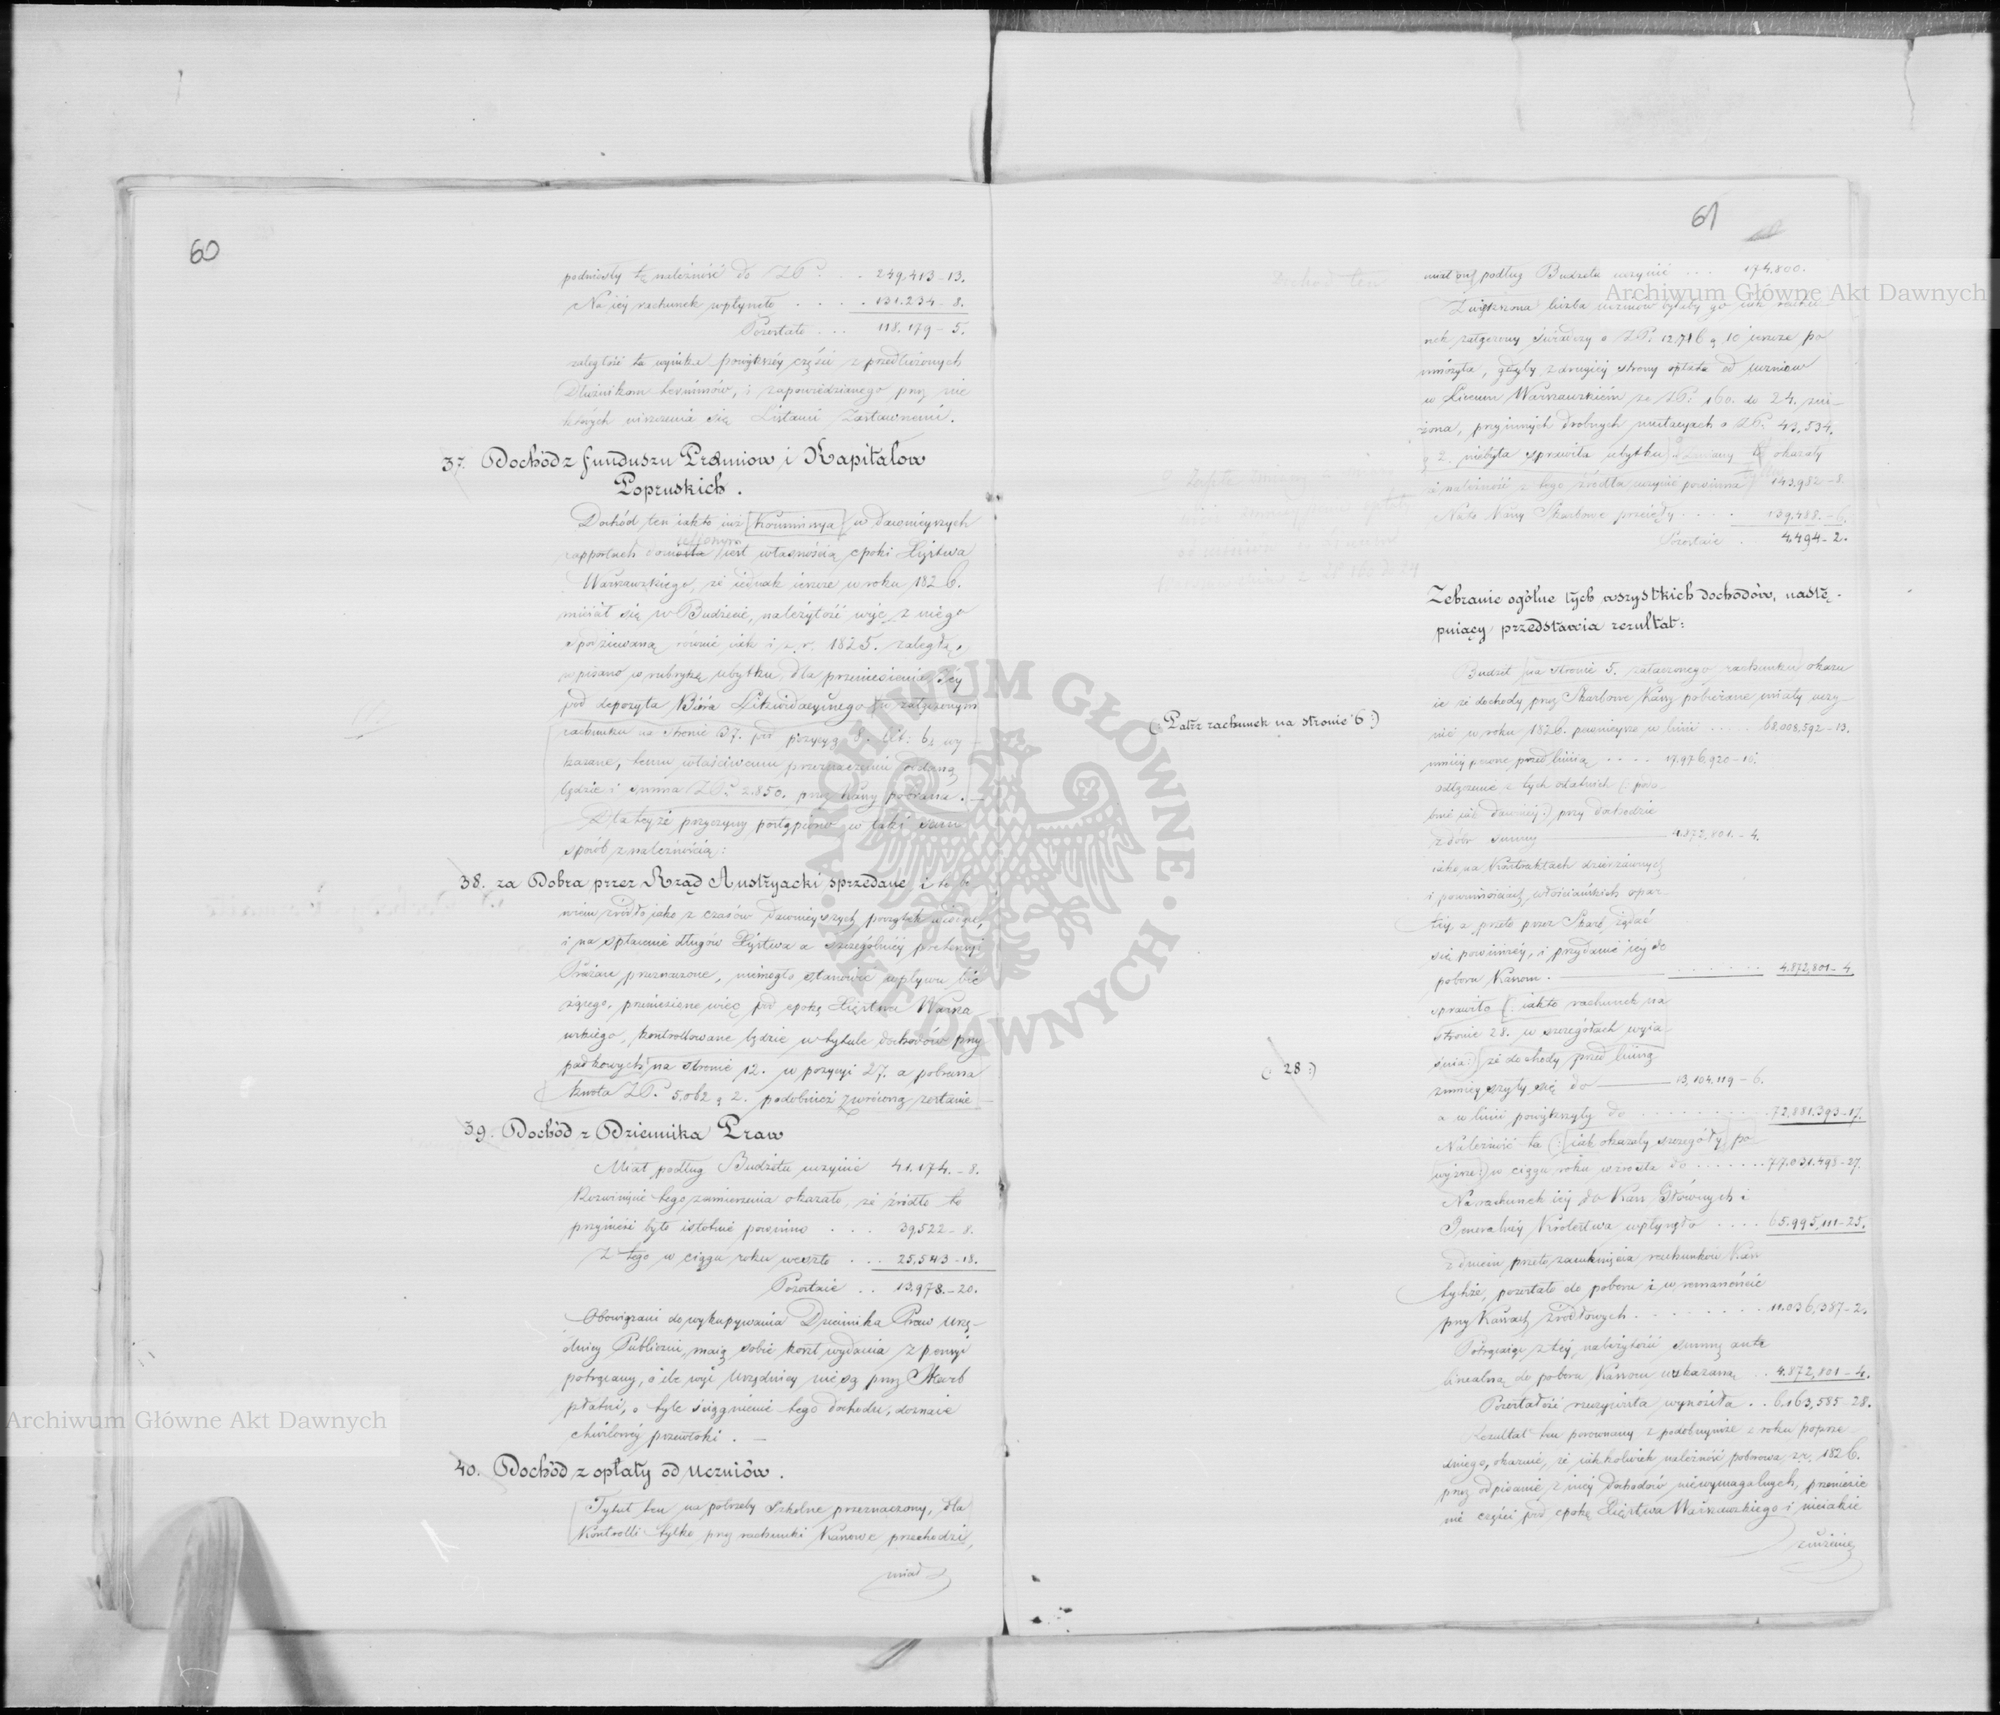 60
podniosły tę należność do ZłP. . . 249,413-13.
Na iéy rachunek wpłynęło . . . . 131.234-8.
Pozostało . . . 118.179-5.
zaległość ta wynika powiększéy części z przedłużonych
Dłużnikom terminów, i zapowiedzianego przez nie
których uiszczenia się Listami Zastawnemi.
37. Dochód z funduszu Prömiow i Kapitałow
Popruskich.
Dochód ten iakto iuż Kommissya w dawnieyszych
rapportach doniosła iest własnością epoki Xięstwa
Warszawskiego, że iednak ieszcze w roku 1826.
mieścił się w Budżecie, należytość więc z niego
spodziewaną równie iak i z r. 1825. zaległą,
wpisano w rubrykę ubytku, dla przeniesienia iéy
pod depozyta Biura Likwidacyinego w załączonym
rachunku na stronie 37. pod pozycyą 8. lit: b; wy-
kazane, temu właściwemu przeznaczeniu oddaną
będzie i summa ZłP. 2.850. przez Kassy pobrana. —
Dla teyże przyczyny postąpiono w taki sam
sposób z należnością:
38. za Dobra przez Rząd Austryacki sprzedane, i to bo
wiem źródło iako z czasów dawnieyszych początek wiodące,
i na spłacenie długów Xięstwa a szczególniéy pretensyi
przeznaczone, niemogło stanowić wpływu bie
żącego, przeniesione więc pod epokę Xięstwa Warsza
wskiego, kontrollowane będzie w tytule dochodów przy
padkowych na stronie 12. w pozycyi 27. a pobrana
kwota ZłP. 5,062 g 2. podobnież zwróconą zostanie —
39. Dochód z Dziennika Praw
Miał podług Budżetu uczynić 41,174.-8.
Rozwinięcie tego zamierzenia okazało, że źródło to
przynieść było istotnie powinno . . . 39,522-8.
Z tego w ciągu roku weszło . . . 25,543-18.
Pozostaie . . 13,978.-20.
Obowiązani do wykupywania Dziennika Praw Urzę-
dnicy Publiczni, maią sobie koszt wydania z pensyi
potrącany, o ile więc Urzędnicy nie są przez Skarb
płatni, o tyle ściągnienie tego dochodu, doznaie
chwilowéy przewłoki. —
40. Dochód z opłaty od Uczniów.
Tytuł ten na potrzeby Szkolne przeznaczony, dla
Kontrolli tylko przez rachunki Kassowe przechodzi,
miał
61
Dochód ten
miał on podług Budżetu uczynić . . . 174.800.
Zwiększona liczba uczniów byłaby go iak rachu
nek załączony świadczy o ZłP. 12,716 g 10 ieszcze po
mnożyła, gdyby z drugiéy strony opłata od uczniow
w Liceum Warszawskiém ze ZłP. 160. do 24. zni-
żona, przy innych drobnych mutacyach o ZłP. 43,534.
g 2. niebyła sprawiła ubytku
a należność z tego źródła uczynić powinna 143,982-8.
Na to Kassy Skarbowe przyięły . . . . 139,488.-6.
Pozostaie . . 4,494-2.
Zebranie ogólne tych wszystkich dochodów, nastę-
puiący przedstawia rezultat:
(: Patrz rachunek na stronie 6:)
Budżet na stronie 5. załączonego rachunku okazu
ie że dochody przez Skarbowe Kassy pobierane miały uczy-
nić w roku 1826. pewnieysze w linii . . . . . 68,008,592-13.
mniéy pewne przed linią . . . . 17,976,920-10.
odłączenie z tych ostatnich (: podo-
bnie iak dawniéy:) przy dochodzie
z dóbr summy — 4,872,801.-4.
iako na Kontraktach dzierżawnych
i powinnościach włościańskich opar-
téy, a przeto przez Skarb żądać
się powinnéy, i przydanie iéy do
poboru Kassom. — . . . . . . . 4,872,801-4.
sprawiło (: iakto rachunek na
stronie 28. w szczegółach wyia-
śnia:) że dochody przed linią
(: 28:)
zmnieyszyły się do — 13,104.119-6.
a w linii powiększyły do . . . . . . . . 72,881.393-17.
Należność ta (: iak okazały szczegóły po
wyższe:) w ciągu roku wzrosła do . . . . . . 77.031.498-27.
Na rachunek iéy do Kass Głównych i
Jeneralnéy Królestwa wpłynęło . . . . 65.995,111-25.
z dniem przeto zamknięcia rachunków Kass
tychże, pozostało do poboru i w remanencie
przy Kassach źródłowych. . . . . . . . . . 11.036,387-2.
Potrąciwszy z téy należytości summę ante
linealną do poboru Kassom wskazaną . . 4,872,801-4.
Pozostałość rzeczywista wynosiła . . 6,163,585-28.
Rezultat ten porownany z podobnymże z roku poprze
dniego, okazuie, że iakkolwiek należność poborowa z r. 1826.
przez odpisanie z niéy dochodów niewymagalnych, przeniesie
nie części pod epokę Xięstwa Warszawskiego i nieiakie
zniżenie
Archiwum Główne Akt Dawnych
Archiwum Główne Akt Dawnych
ARCHIWUM GŁÓWNE AKT DAWNYCH